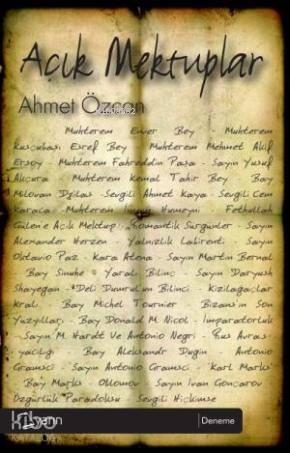 Açık Mektuplar
Ahmet Özcan
Muhterem Enver Bey - Muhterem
Kuşçubaşı Eşref Bey - Muhterem Mehmet Akif
Ersoy - Muhterem Fahreddin Paşa - Sayın Yusuf
Akçura - Muhterem Kemal Tahir Bey - Bay
Milovan Djilas - Sevgili Ahmet Kaya - Sevgili Cem
Karaca - Muhterem İmam Humeyni - Fethullah
Gülen'e Açık Mektup - Romantik Sürgünler - Sayın
Alexander Herzen - Yalnızlık Labirenti - Sayın
Oktavio Paz - Kara Atena - Sayın Martin Bernal
- Bay Sinuhe - Yaralı Bilinç - Sayın Daryush
Shayegan - Deli Dumrul'un Bilinci - Kızılağaçlar
Kralı - Bay Michel Tournier - Bizans'ın Son
Yüzyılları - Bay Donald M. Nicol - İmparatorluk
- Sayın M. Hardt Ve Antonio Negri - Rus Avras-
yacılığı - Bay Aleksandr Dugin - Antonio
Gramsci - Sayın Antonio Gramsci - Karl Marks
- Bay Marks - Oblomov - Sayın Ivan Gonçarov -
Özgürlük Paradoksu - Sevgili Hiçkimse
Deneme